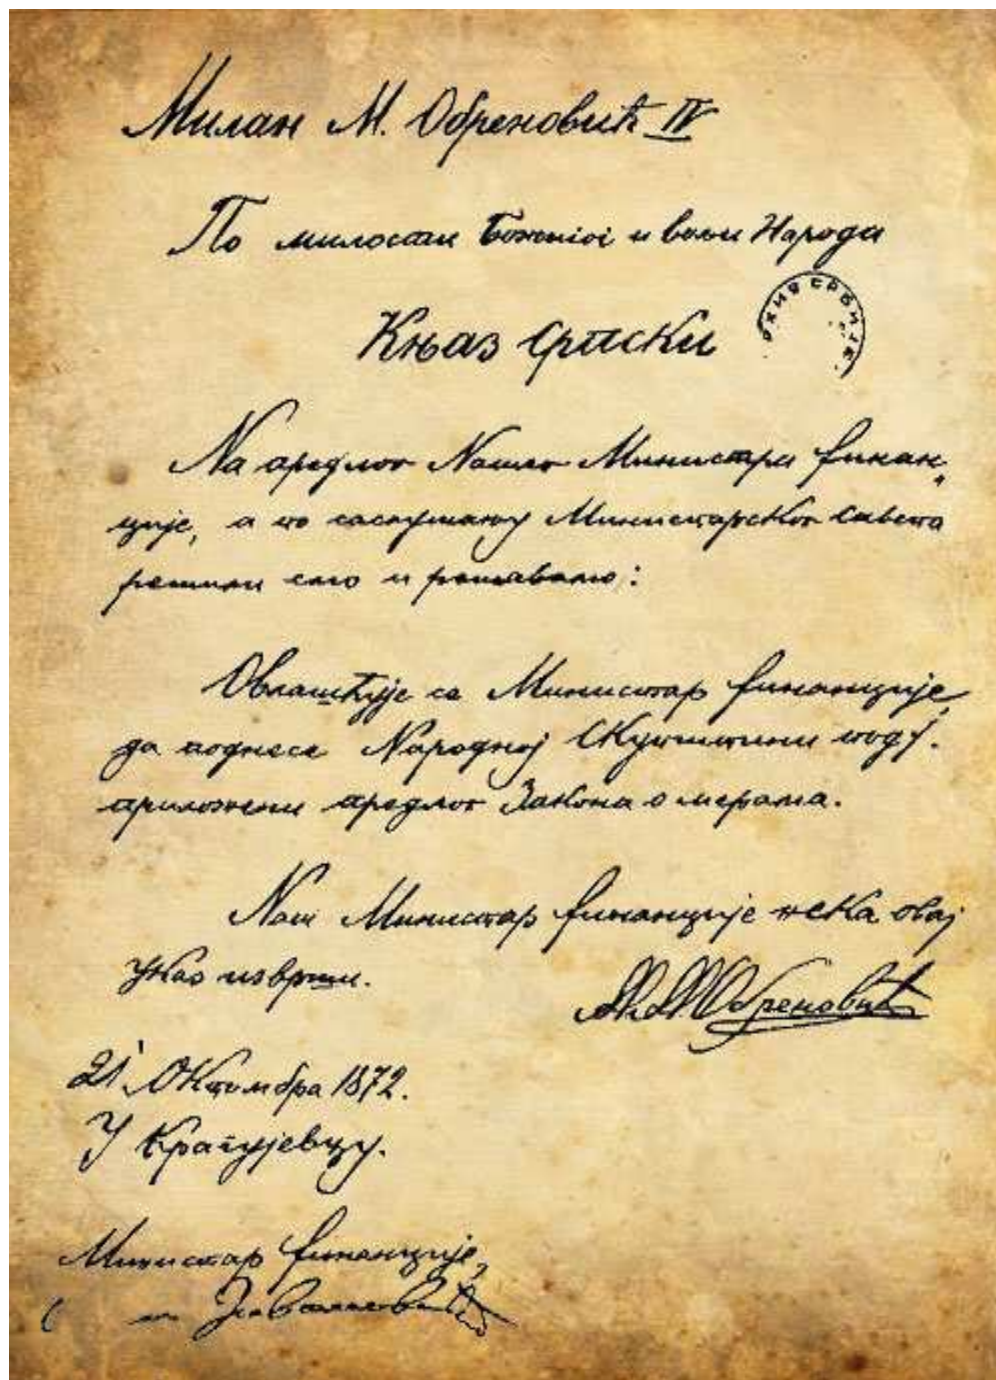 Милан М. Обреновић IV
По милости Божіiоі и вољи Народа
Књаз Српски
Архив Србије
На предлог Нашег Министра финан„
ције, а по саслушању Министарског Савета
решили смо и решавамо:
Овлашћује се Министар финанције,
да поднесе Народној Скупштини под ./.
приложени предлог Закона о мерама.
Наш Министар финанције нека овај
указ изврши.
М. М. Обреновић
21 Октомбра 1872.
У Крагујевцу.
Министар финанције,